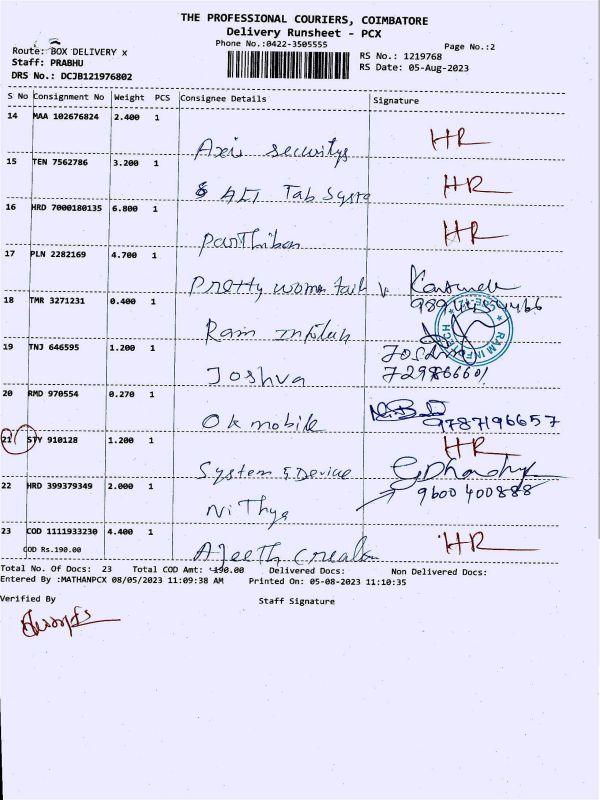 THE PROFESSIONAL COURIERS, COIMBATORE
Delivery Runsheet - PCX
Phone No.:0422-3505555
Page No.:2
Route: BOX DELIVERY x
RS No.: 1219768
Staff: PRABHU
RS Date: 05-Aug-2023
DRS No.: DCJB121976802
S No Consignment No Weight PCS Consignee Details Signature
14 MAA 102676824 2.400 1
Axis securitys HR
15 TEN 7562786 3.200 1
Tab HR
16 HRD 7000180135 6.800 1
Parthiban HR
17 PLN 2282169 4.700 1
Pretty woman
18 TMR 3271231 0.400 1
Ram Infotech RAM INFOTECH
19 TNJ 646595 1.200 1
Joshva Joshva
20 RMD 970554 0.270 1
Ok mobile 9787196657
21 STY 910128 1.200 1 HR
System & Device
22 HRD 399379349 2.000 1 9600 400888
Nithya
23 COD 1111933230 4.400 1 HR
COD Rs.190.00
Ajeeth
Total No. Of Docs: 23 Total COD Amt: 190.00 Delivered Docs: Non Delivered Docs:
Entered By :MATHANPCX 08/05/2023 11:09:38 AM Printed On: 05-08-2023 11:10:35
Verified By Staff Signature